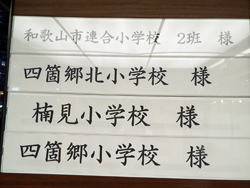 和歌山市連合小学校　2班　様
四箇郷北小学校　様
楠見小学校　様
四箇郷小学校　様